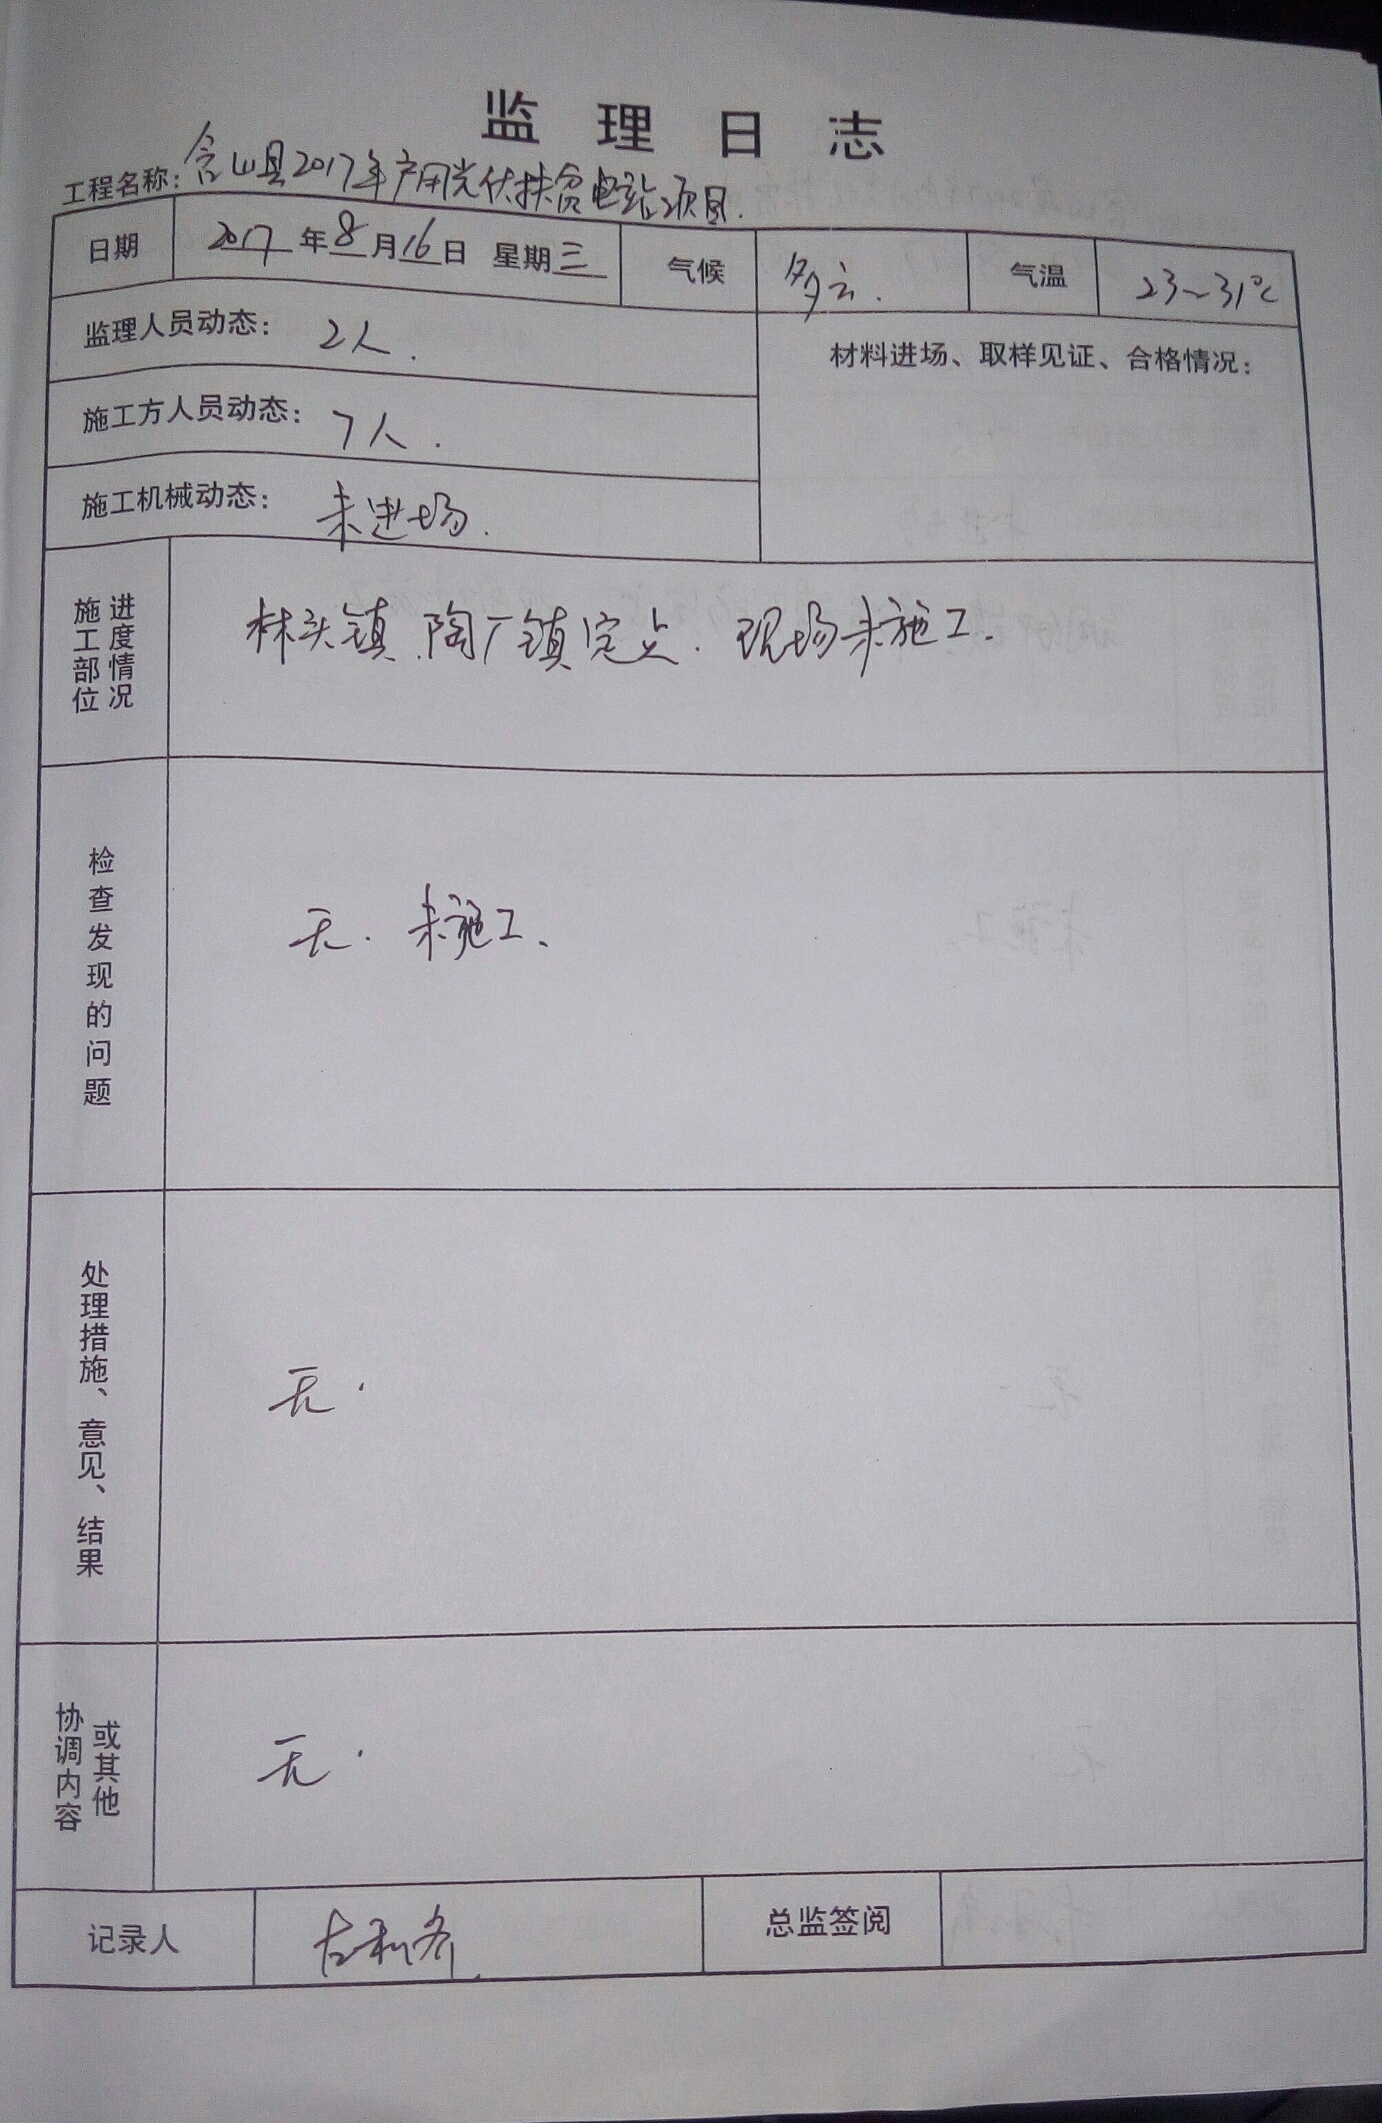 监理日志
工程名称：含山县2017年户用光伏扶贫电站项目.
日期 2017年8月16日 星期三 气候 多云. 气温 23~31℃
监理人员动态： 2人.
材料进场、取样见证、合格情况：
施工方人员动态： 7人.
施工机械动态： 未进场.
施工部位 进度情况 林头镇.陶厂镇定点.现场未施工.
检查发现的问题 无.未施工.
处理措施、意见、结果 无.
协调内容 或其他 无.
记录人 总监签阅